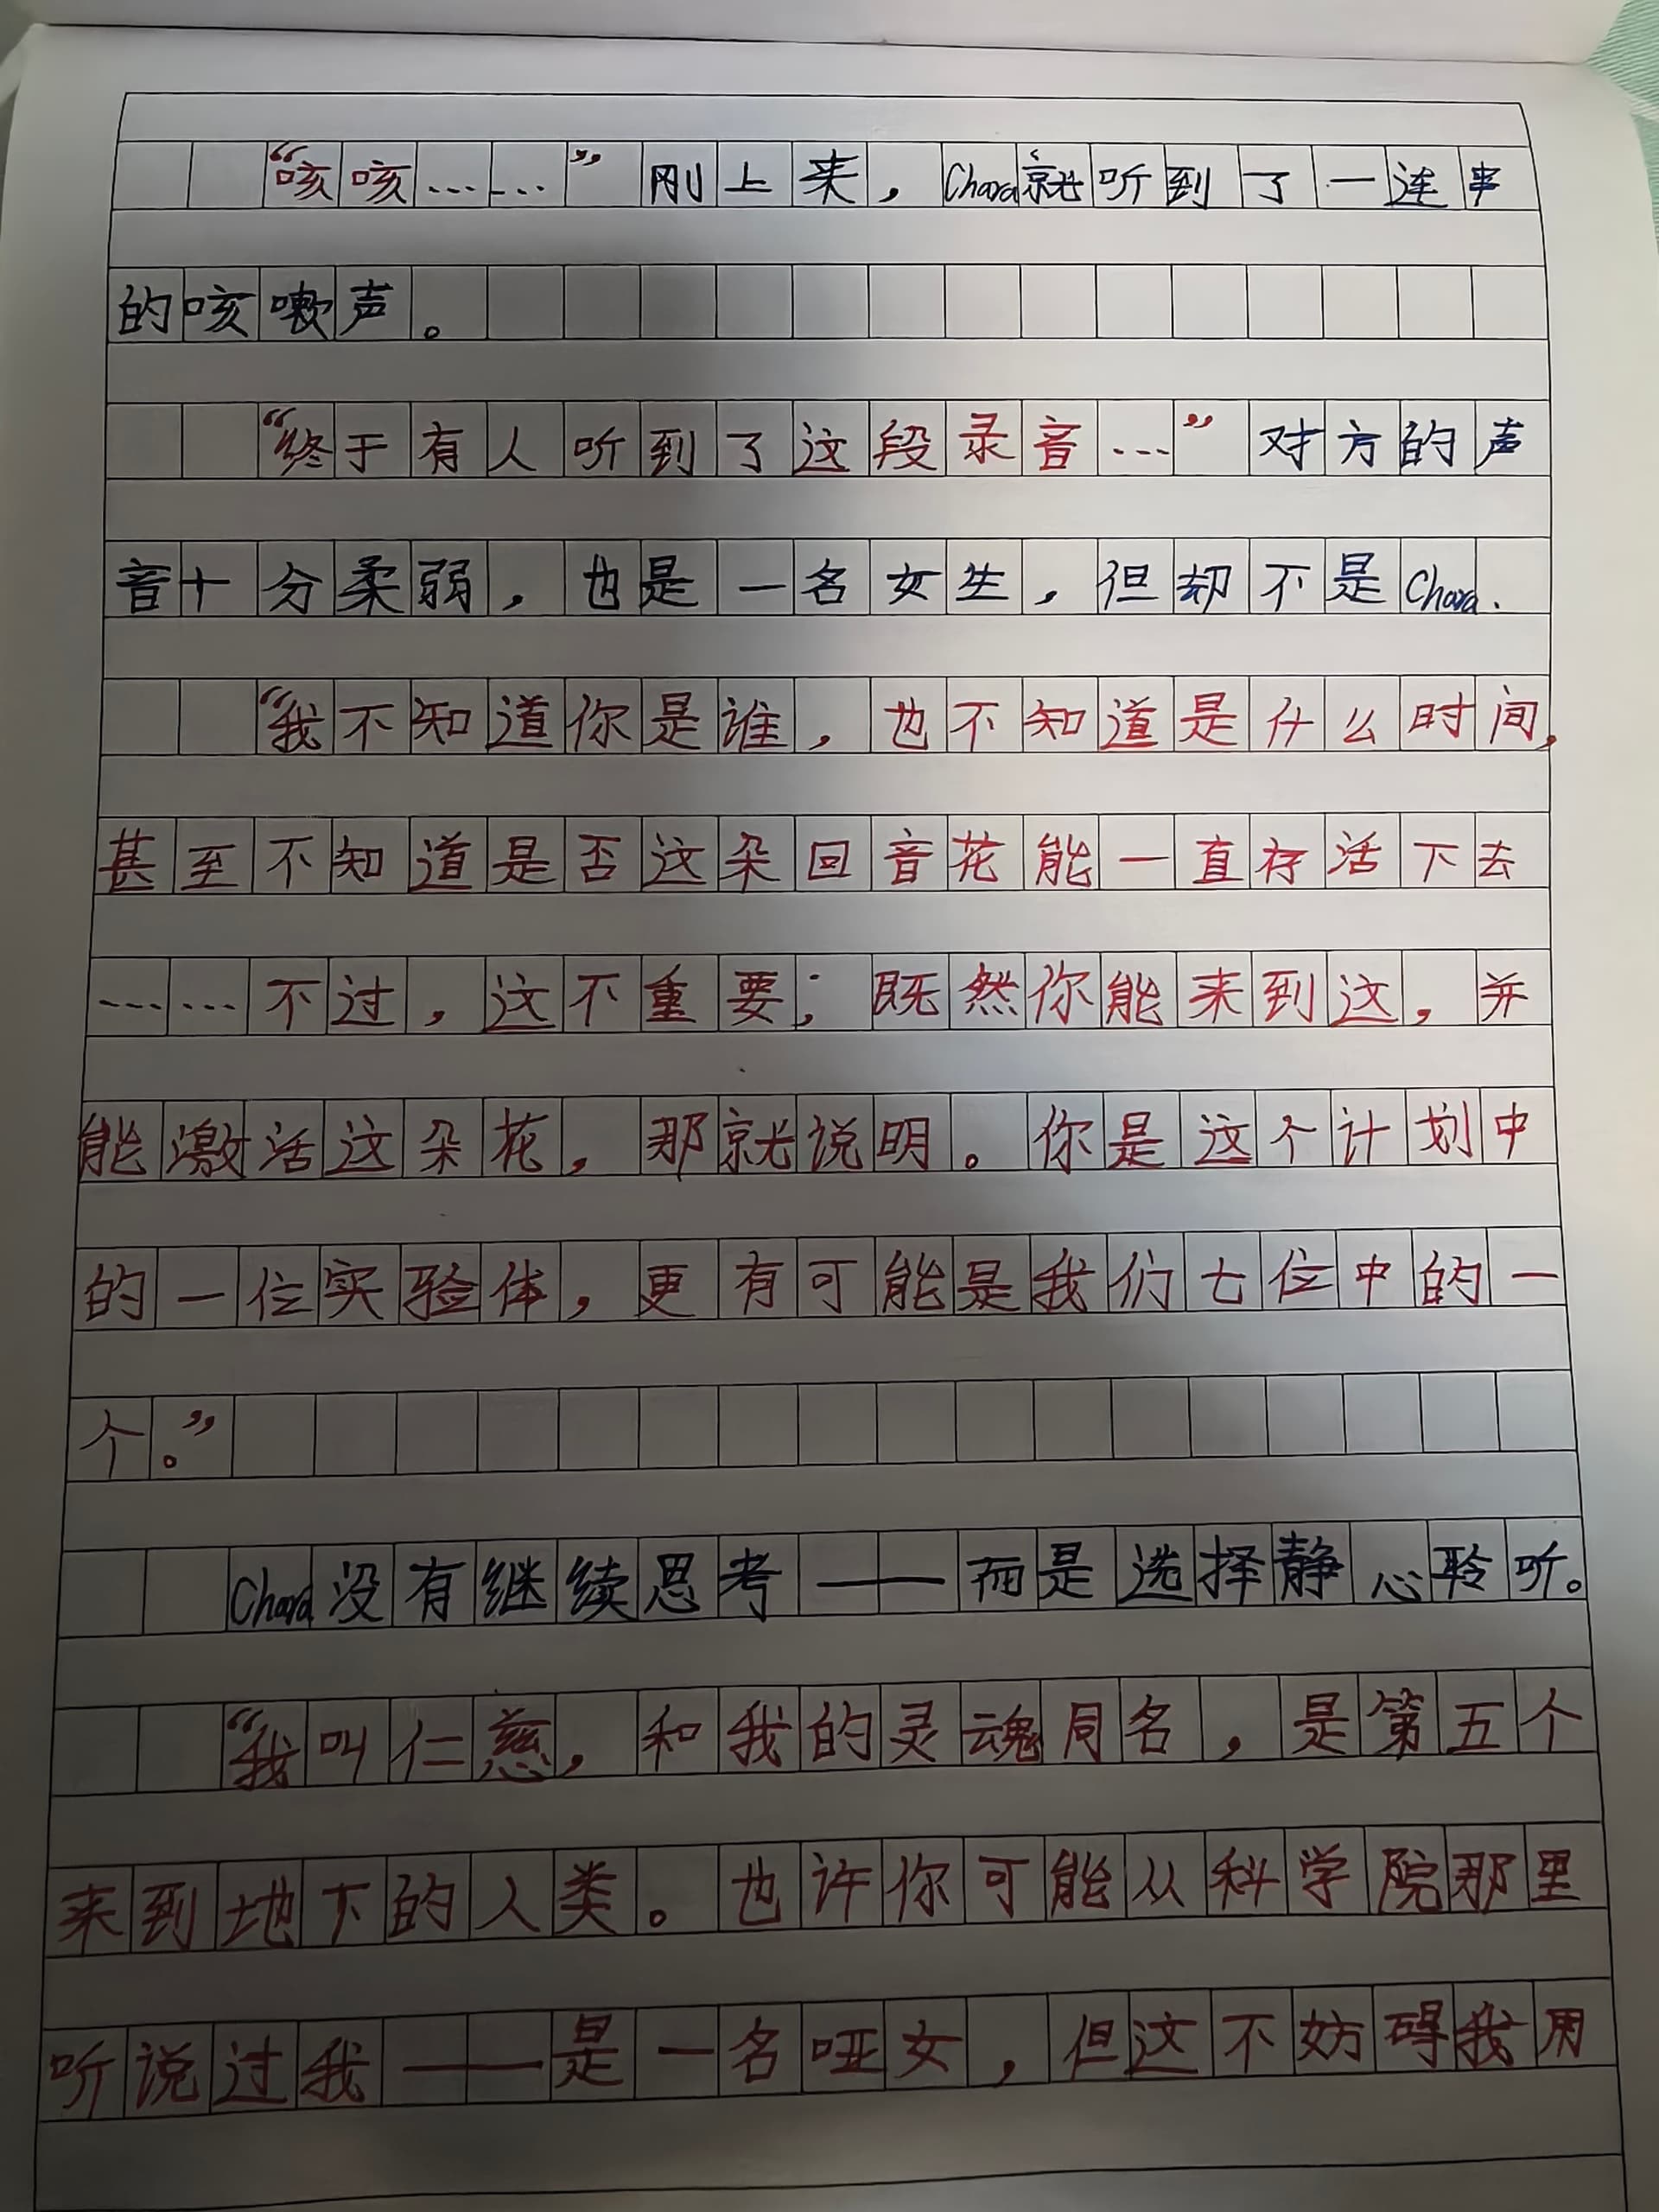 “咳咳……”刚上来，Chara就听到了一连串
的咳嗽声。
“终于有人听到了这段录音…”对方的声
音十分柔弱，也是一名女生，但却不是Chara.
“我不知道你是谁，也不知道是什么时间，
甚至不知道是否这朵回音花能一直存活下去
……不过，这不重要；既然你能来到这，并
能激活这朵花，那就说明。你是这个计划中
的一位实验体，更有可能是我们七位中的一
个。”
Chara没有继续思考——而是选择静心聆听。
“我叫仁慈，和我的灵魂同名，是第五个
来到地下的人类。也许你可能从科学院那里
听说过我——是一名哑女，但这不妨碍我用